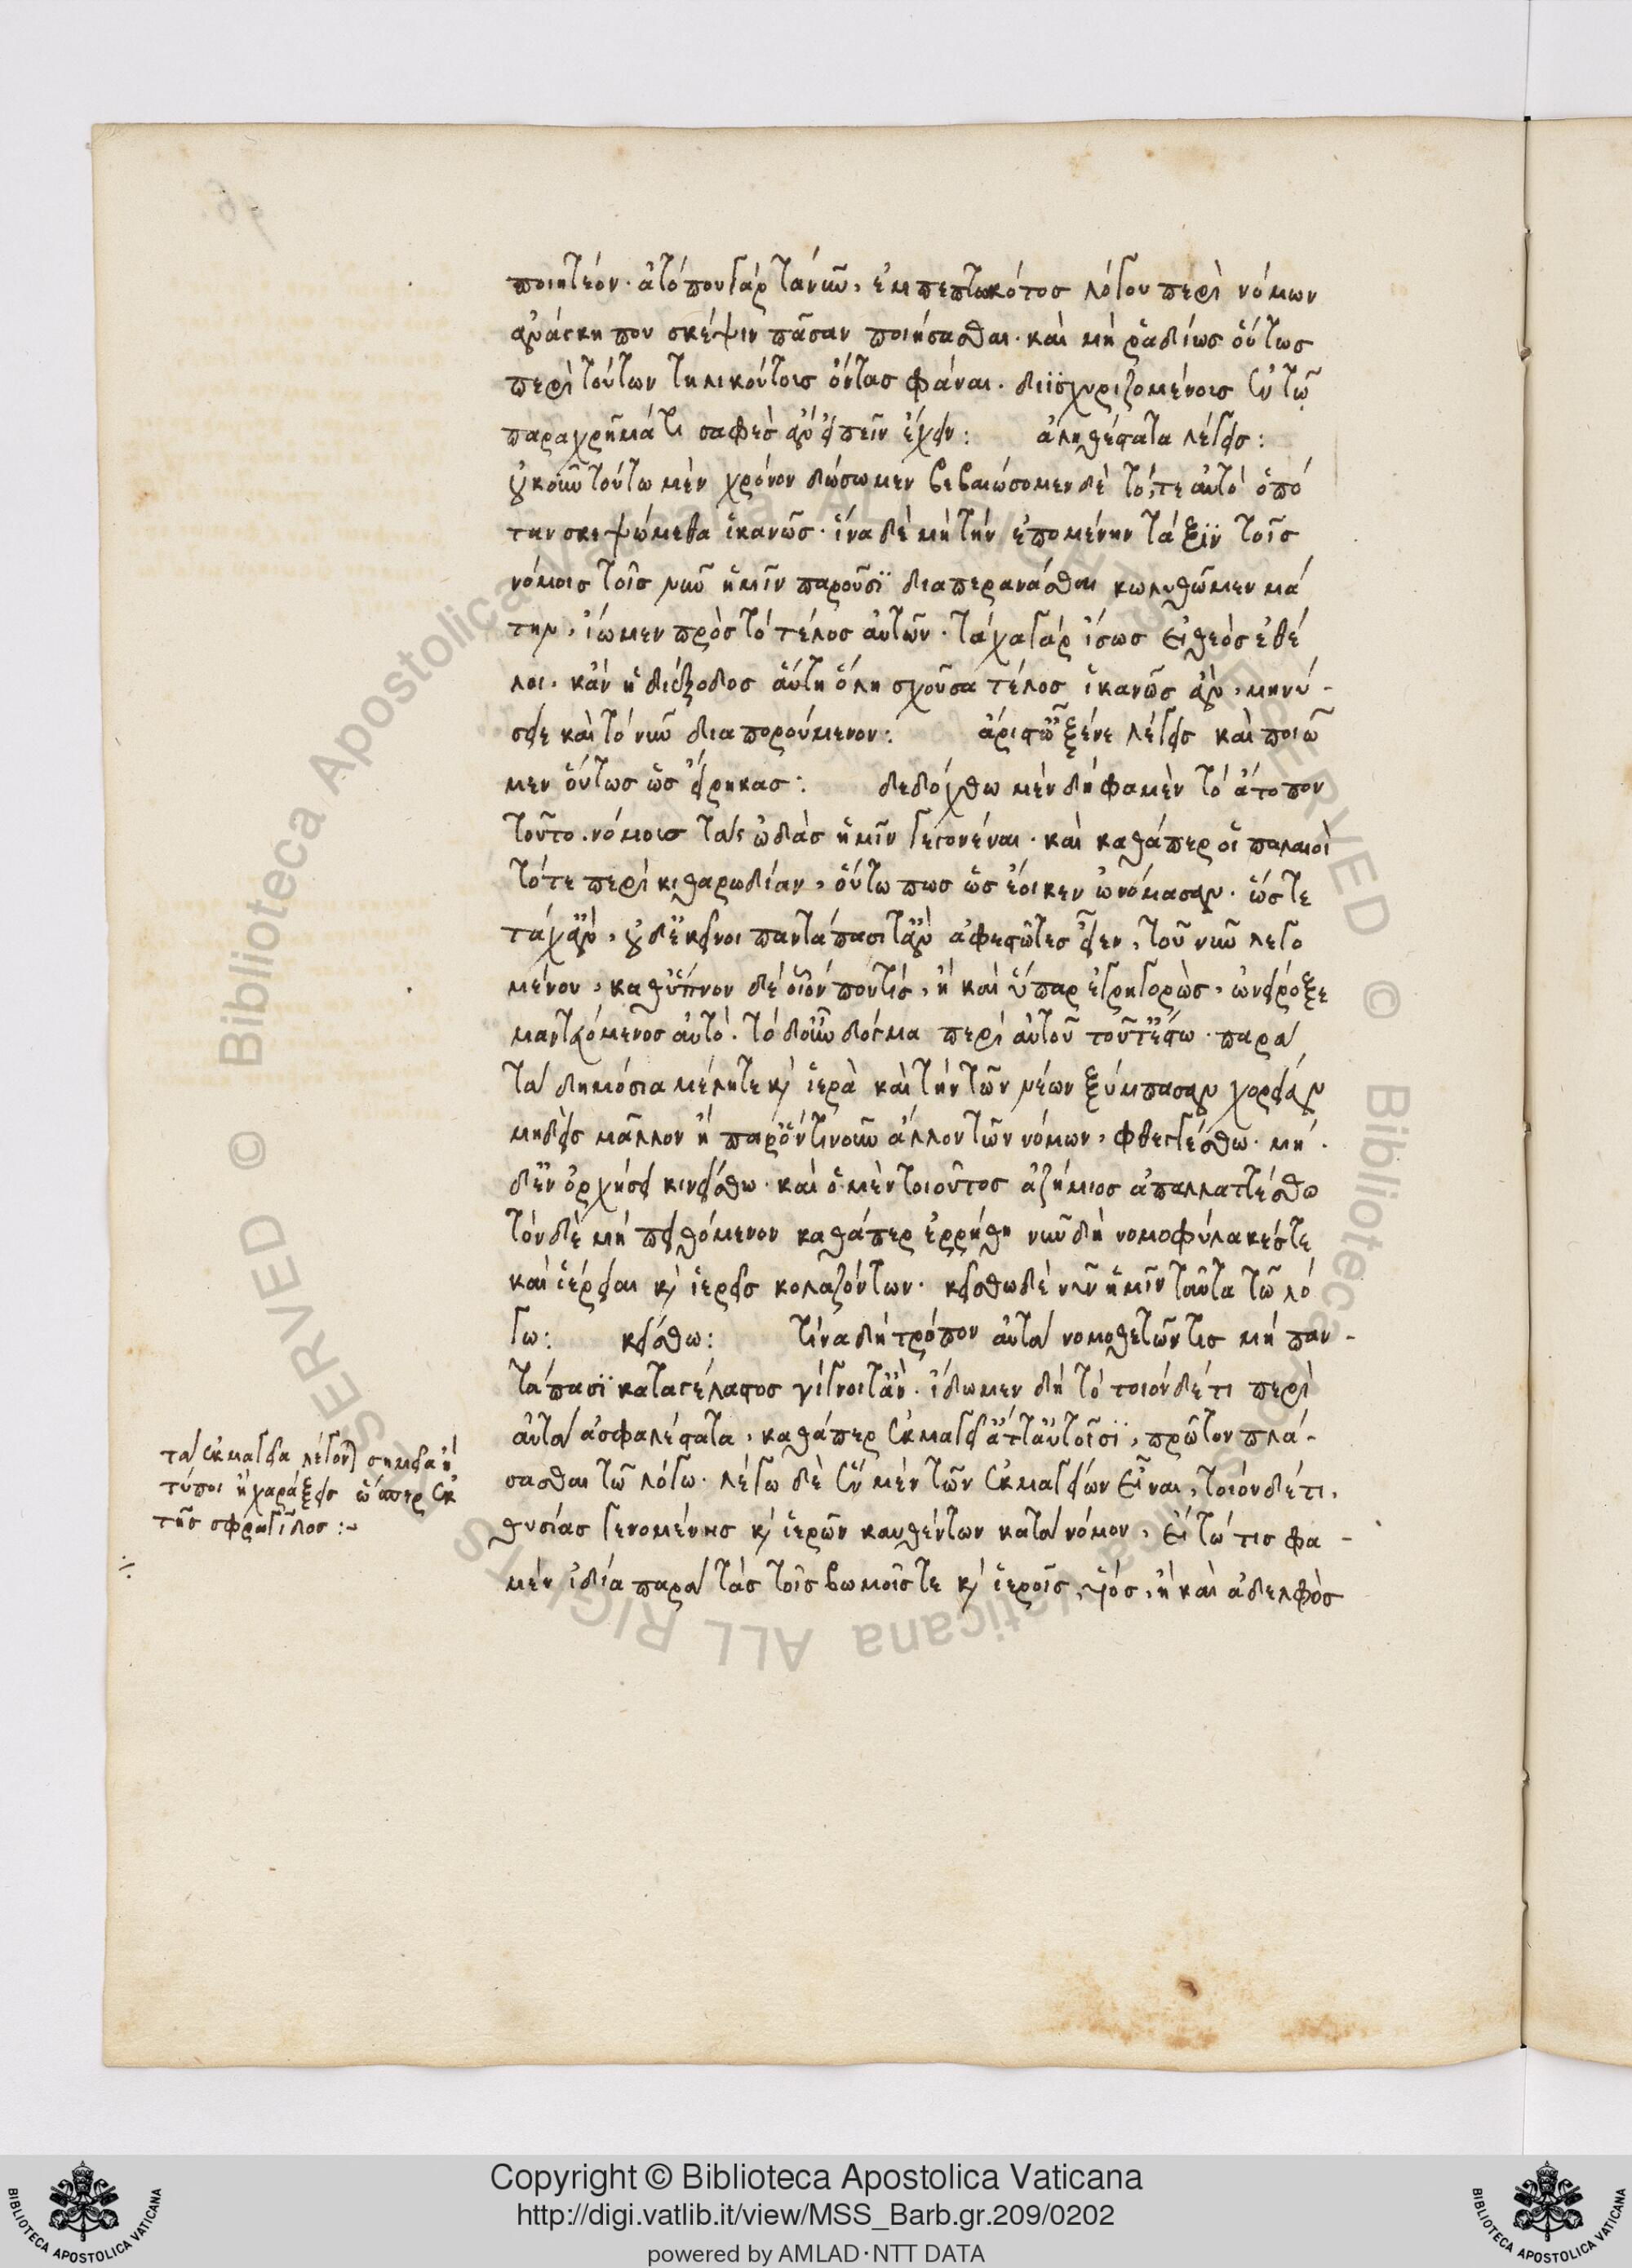 ποιητέον· ἀτόπου γὰρ τανῦν, ἐμπεπτωκότος λόγου περὶ νόμων
ἀνάγκη που σκέψιν πᾶσαν ποιήσασθαι· καὶ μὴ ῥαδίως οὕτως
περὶ τούτων τηλικούτοις ὄντας φάναι· διϊσχυριζομένοις ἐν τῷ
παραχρῆμά τι σαφὲς ἂν εἰπεῖν ἔχειν: ἀληθέστατα λέγεις:
οὐκοῦν τούτω μὲν χρόνον δώσωμεν βεβαιώσομεν δὲ τότε αὐτὸ ὁπό
ταν σκεψώμεθα ἱκανῶς· ἵνα δὲ μὴ τὴν ἑπομένην τάξιν τοῖς
νόμοις τοῖς νῦν ἡμῖν παροῦσι διαπερανάσθαι κωλυθῶμεν μά
την, ἴωμεν πρὸς τὸ τέλος αὐτῶν· τάχα γὰρ ἴσως εἰ θεὸς ἐθέ
λοι, κἂν ἡ διέξοδος αὕτη ὅλη σχοῦσα τέλος ἱκανῶς ἂν, μηνύ-
σειε καὶ τὸ νῦν διαπορούμενον: ἄριστ' ὦ ξένε λέγεις καὶ ποιῶ
μεν οὕτως ὡς εἴρηκας: δεδόχθω μὲν δὴ φαμὲν τὸ ἄτοπον
τοῦτο. νόμους τὰς ὠδὰς ἡμῖν γεγονέναι· καὶ καθάπερ οἱ παλαιοὶ
τότε περὶ κιθαρωδίαν, οὕτω πως ὡς ἔοικεν ὠνόμασαν· ὥστε
τάχ' ἂν, οὐδ' ἐκεῖνοι παντάπασί γ' ἂν ἀφεστῶτες εἶεν, τοῦ νῦν λεγο
μένου, καθ' ὕπνον δὲ οἷόν πού τις, ἢ καὶ ὕπαρ ἐγρηγορὼς, ὠνείρωξε
μαντευόμενος αὐτό· τὸ δ' οὖν δόγμα περὶ αὐτοῦ τοῦτ' ἔστω· παρὰ
τὰ δημόσια μέλη τε κ ἱερὰ καὶ τὴν τῶν νέων ξύμπασαν χορείαν
μηδεὶς μᾶλλον ἢ παρ' ὁντινοῦν ἄλλον τῶν νόμων, φθεγγέσθω· μη
δ' ἐν ὀρχήσει κινείσθω· καὶ ὁ μὲν τοιοῦτος ἀζήμιος ἀπαλλαττέσθω
τὸν δὲ μὴ πειθόμενον καθάπερ ἐρρήθη νῦν δὴ νομοφύλακές τε
καὶ ἱέρειαι κ ἱερεῖς κολαζόντων· κείσθω δὲ νῦν ἡμῖν ταῦτα τῶ λό
γω: κείσθω: τίνα δὴ τρόπον αὐτὰ νομοθετῶν τις μὴ παν-
τάπασι καταγέλαστος γίγνοιτ' ἂν· ἴδωμεν δὴ τὸ τοιόνδέ τι περὶ
αὐτὰ ἀσφαλέστατα, καθάπερ ἐκμαγεῖ' ἄττ' αὐτοῖσι, πρῶτον πλά-
σασθαι τῶ λόγω· λέγω δὲ ἓν μὲν τῶν ἐκμαγείων εἶναι, τοιόνδέ τι,
θυσίας γενομένης κ ἱερῶν καυθέντων κατὰ νόμον, εἴ τώ τις φα-
μὲν ἰδία παρὰ τὰς τοῖς βωμοῖς τε κ ἱεροῖς, υἱός, ἢ καὶ ἀδελφὸς
τὰ ἐκμαγεῖα λέγονται σημεῖα ἢ
τύποι ἢ χαράξεις ὥσπερ ἐκ
τῆς σφραγῖδος:~
Copyright © Biblioteca Apostolica Vaticana
http://digi.vatlib.it/view/MSS_Barb.gr.209/0202
powered by AMLAD·NTT DATA
BIBLIOTECA APOSTOLICA VATICANA
BIBLIOTECA APOSTOLICA VATICANA
© Biblioteca Apostolica Vaticana ALL RIGHTS RESERVED © Biblioteca Apostolica Vaticana ALL RIGHTS RESERVED